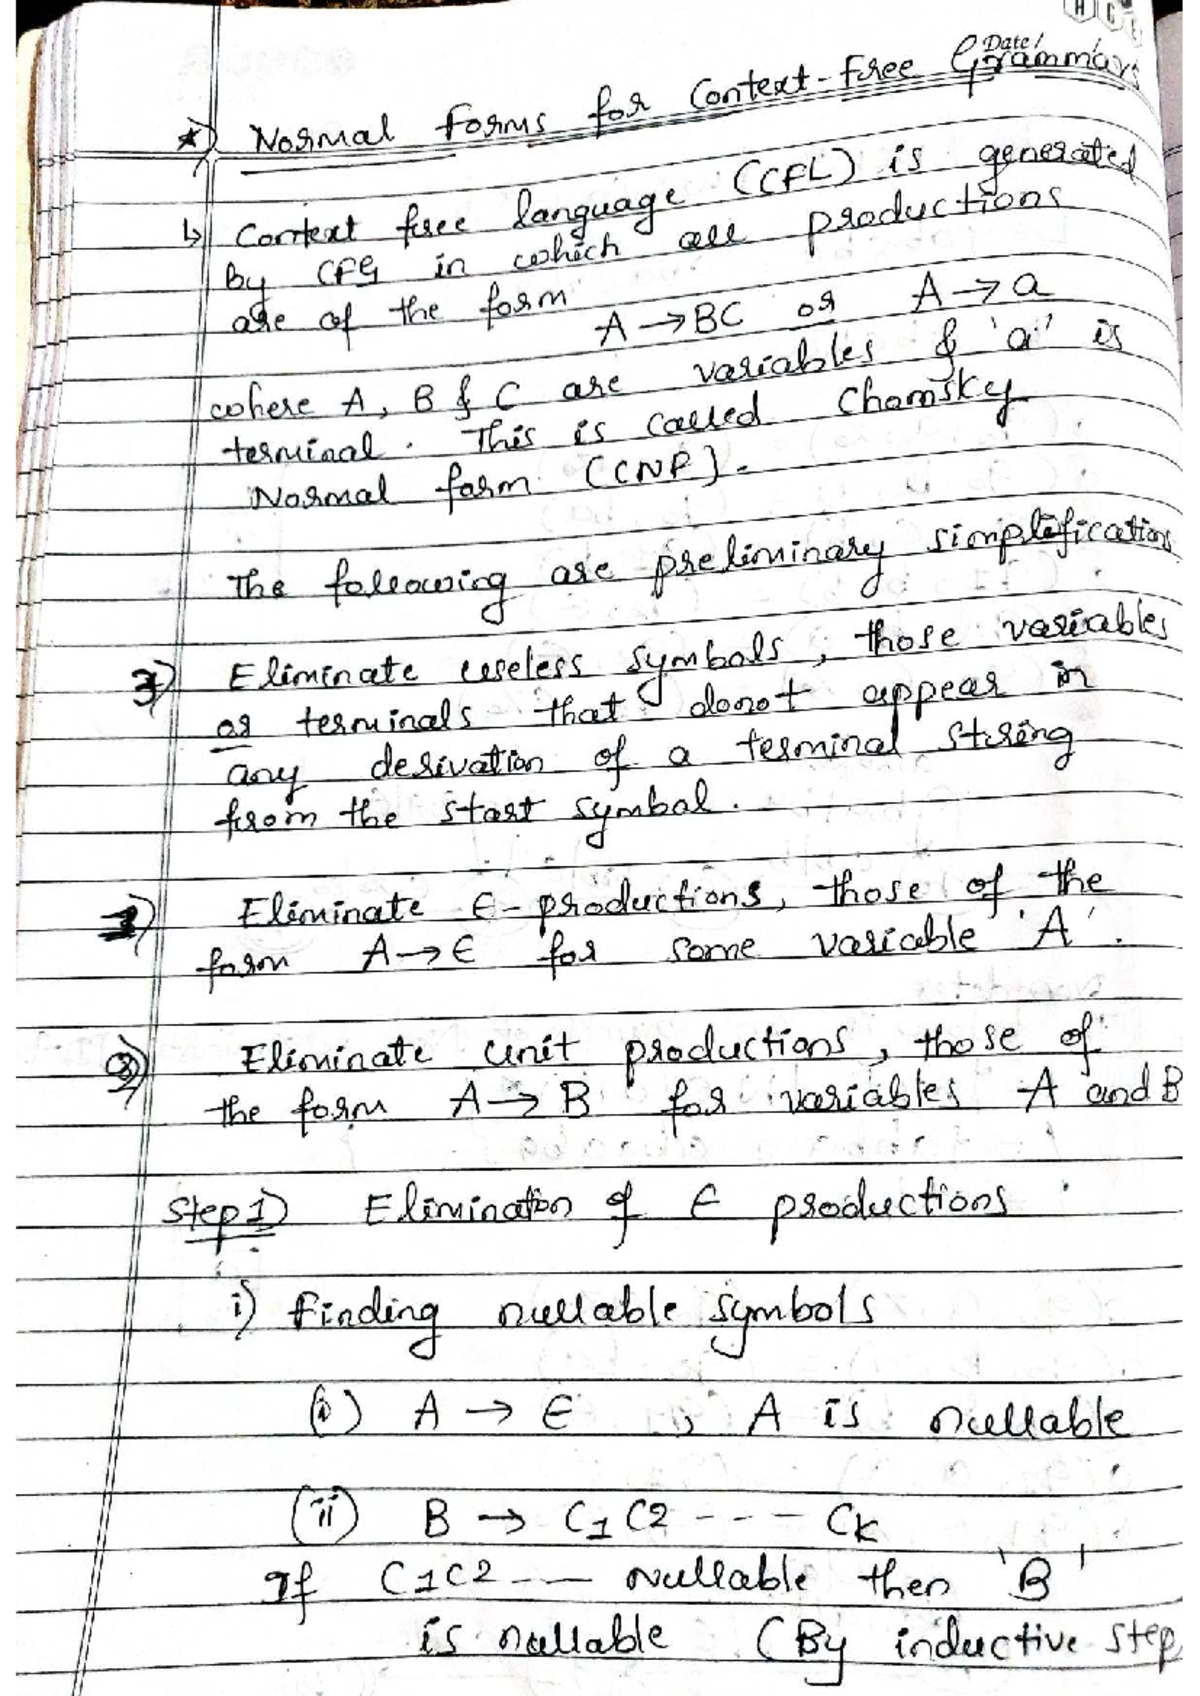 Date /    /
*) Normal forms for Context-free Grammars
↳ Context free language (CFL) is generated
by CFG in which all productions
are of the form
A → BC or A → a
where A, B & C are variables & 'a' is
terminal. This is called Chomsky
Normal form (CNF).
The following are preliminary simplifications
3) Eliminate useless symbols, those variables
or terminals that donot appear in
any derivation of a terminal string
from the start symbol.
1) Eliminate ϵ-productions, those of the
form A → ϵ for some variable 'A'.
2) Eliminate unit productions, those of
the form A → B for variables A and B
Step 1) Elimination of ϵ productions
i) finding nullable symbols
(i) A → ϵ , A is nullable
(ii) B → C1 C2 - - - CK
If C1C2 -- nullable then 'B'
is nullable (By inductive step